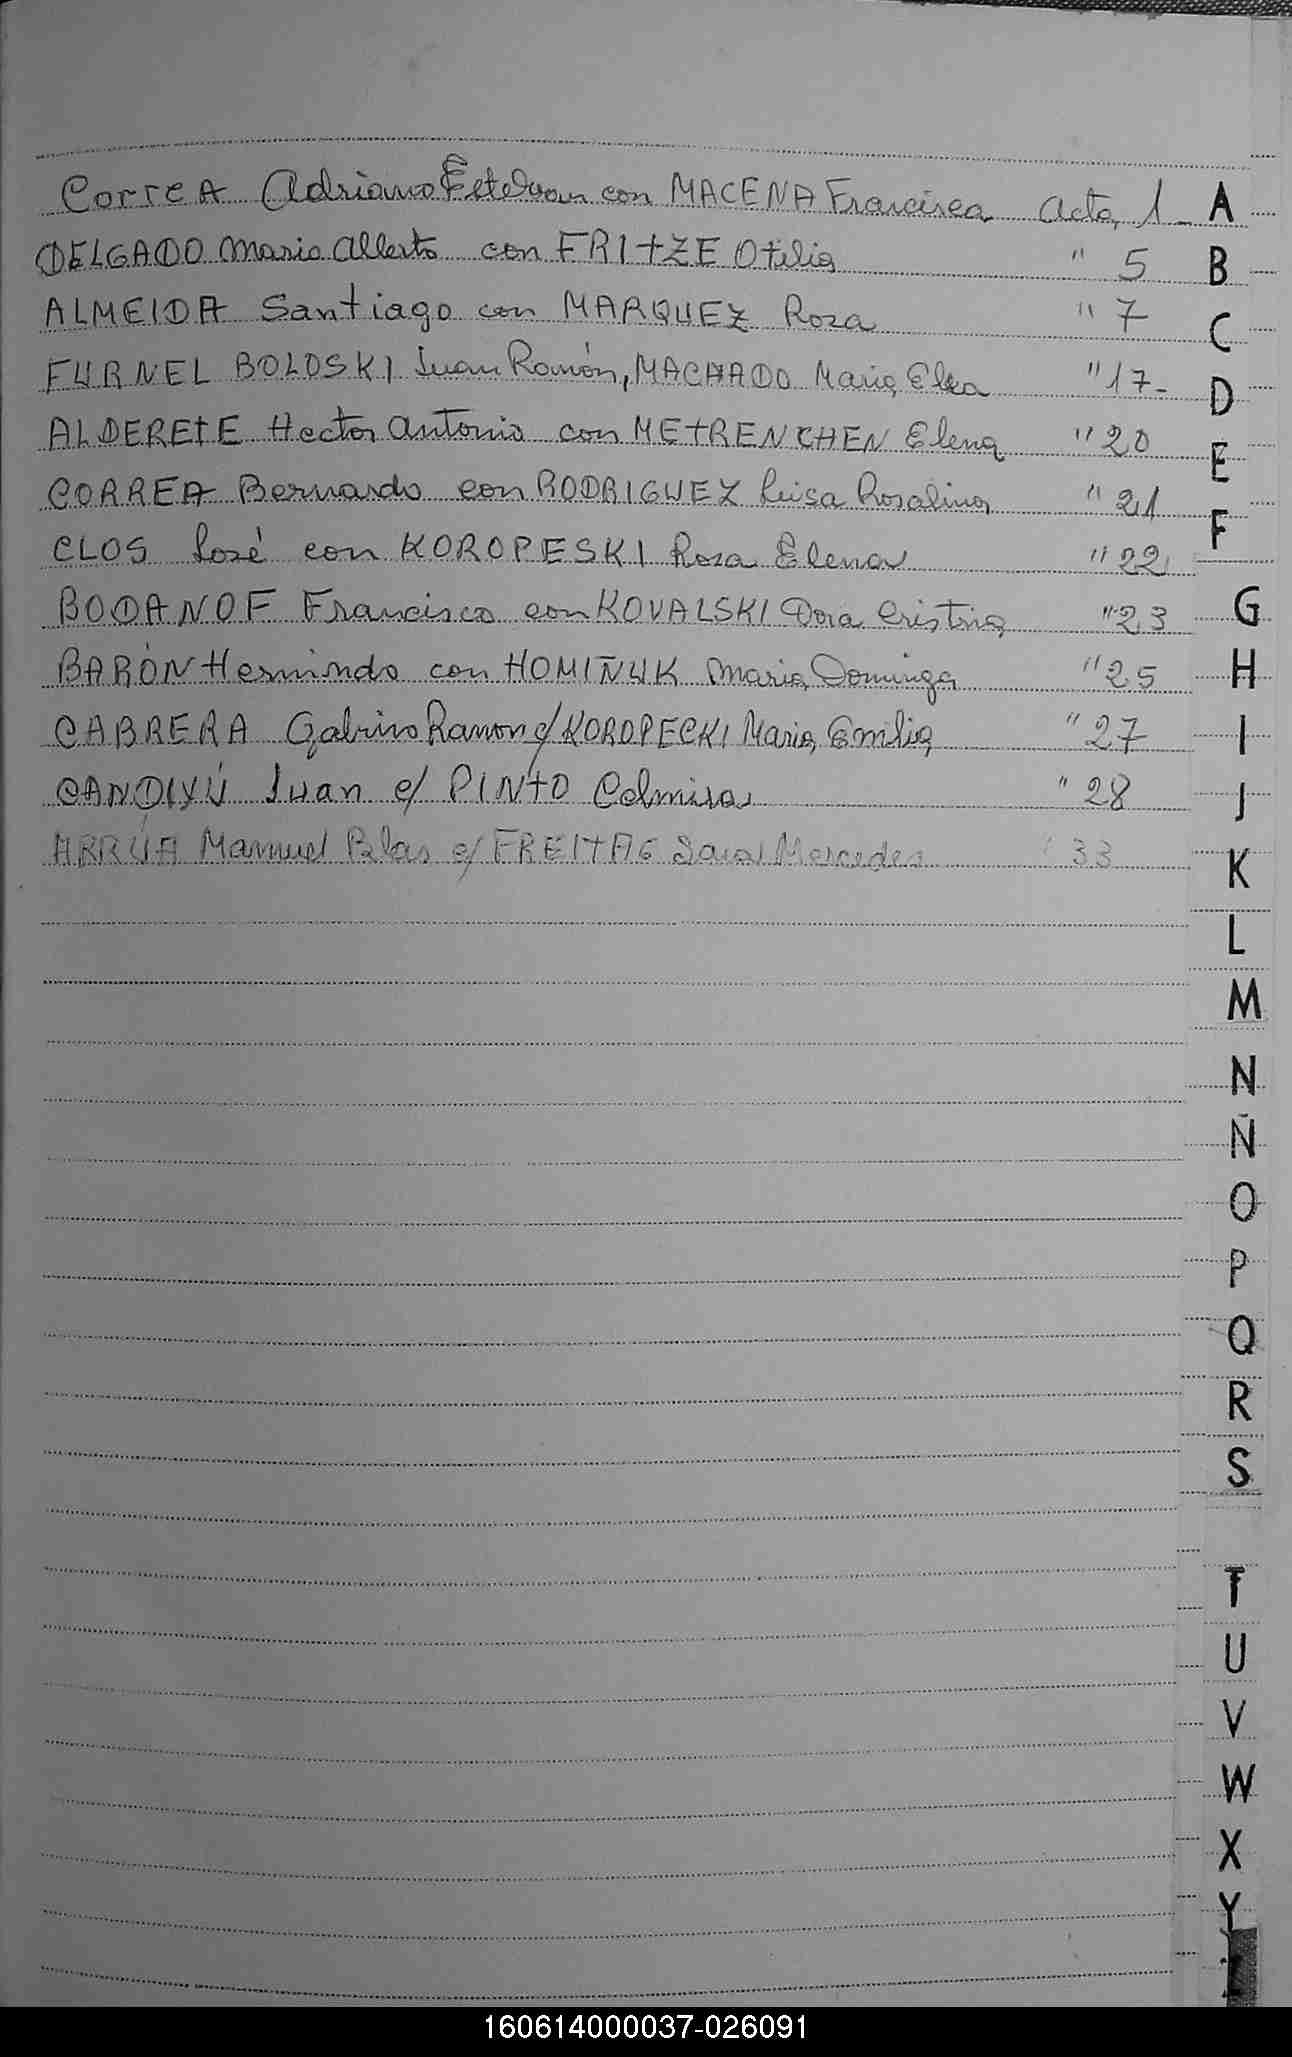 Correa Adriano Estevan con MACENA Francisca Acta 1-
DELGADO Mario Alberto con FRITZE Otilia " 5
ALMEIDA Santiago con MARQUEZ Rosa " 7
FURNEL BOLOSKI Juan Ramón, MACHADO Maria Elsa " 17-
ALDERETE Hector Antonio con METRENCHEN Elena " 20
CORREA Bernardo con RODRIGUEZ Luisa Rosalina " 21
CLOS José con KOROPESKI Rosa Elena " 22
BODANOF Francisco con KOVALSKI Dora Cristina " 23
BARÓN Hermindo con HOMIÑUK Maria Dominga " 25
CABRERA Gabino Ramon c/ KOROPECKI Maria Emilia " 27
CANDIYÚ Juan c/ PINTO Celmira " 28
ARRÚA Manuel Blas c/ FREITAG Sara Mercedes " 33
A
B
C
D
E
F
G
H
I
J
K
L
M
N
Ñ
O
P
Q
R
S
T
U
V
W
X
Y
Z
160614000037-026091